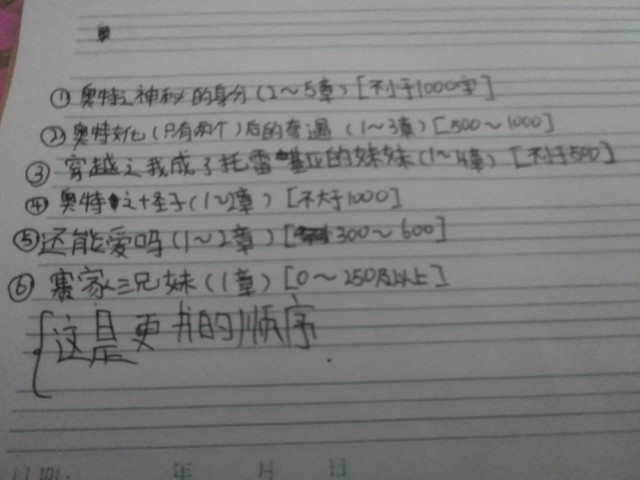 ①奥特之神秘的身分(2～5章)[不小于1000字]
②奥特女化(只有两个)后的奇遇(1～3章)[500～1000]
③穿越之我成了托雷基亚的妹妹(1～4章)[不小于500]
④奥特之十圣子(1～2章)[不大于1000]
⑤还能爱吗(1～2章)[300～600]
⑥赛家三兄妹(1章)[0～250及以上]
这是更书的顺序.
年 月 日